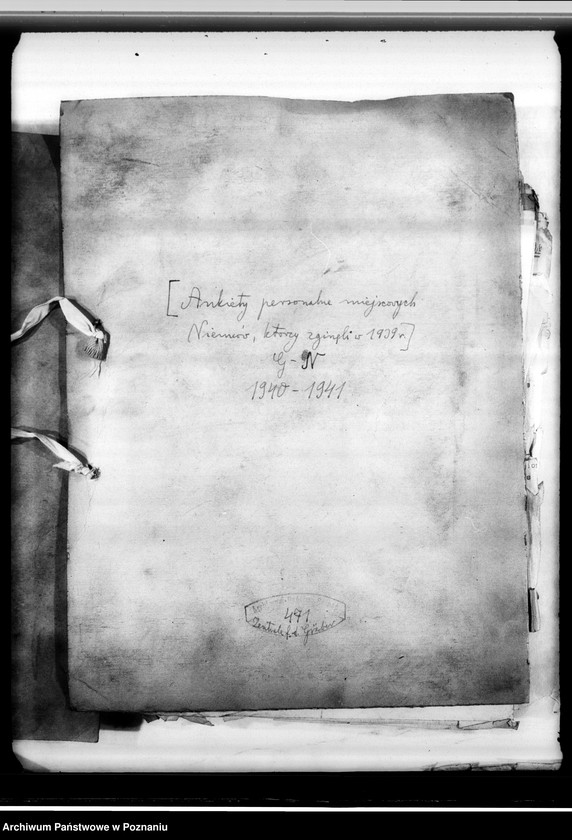 [Ankiety personalne miejscowych
Niemców, którzy zginęli w 1939 r.]
G - N
1940 - 1941
491
Zentrale f. d. Gräber
Archiwum Państwowe w Poznaniu